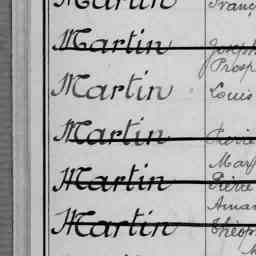 Martin
Martin Joseph
Prosp
Martin Louis
Martin Pierre
Martin Pierre
Martin Théop